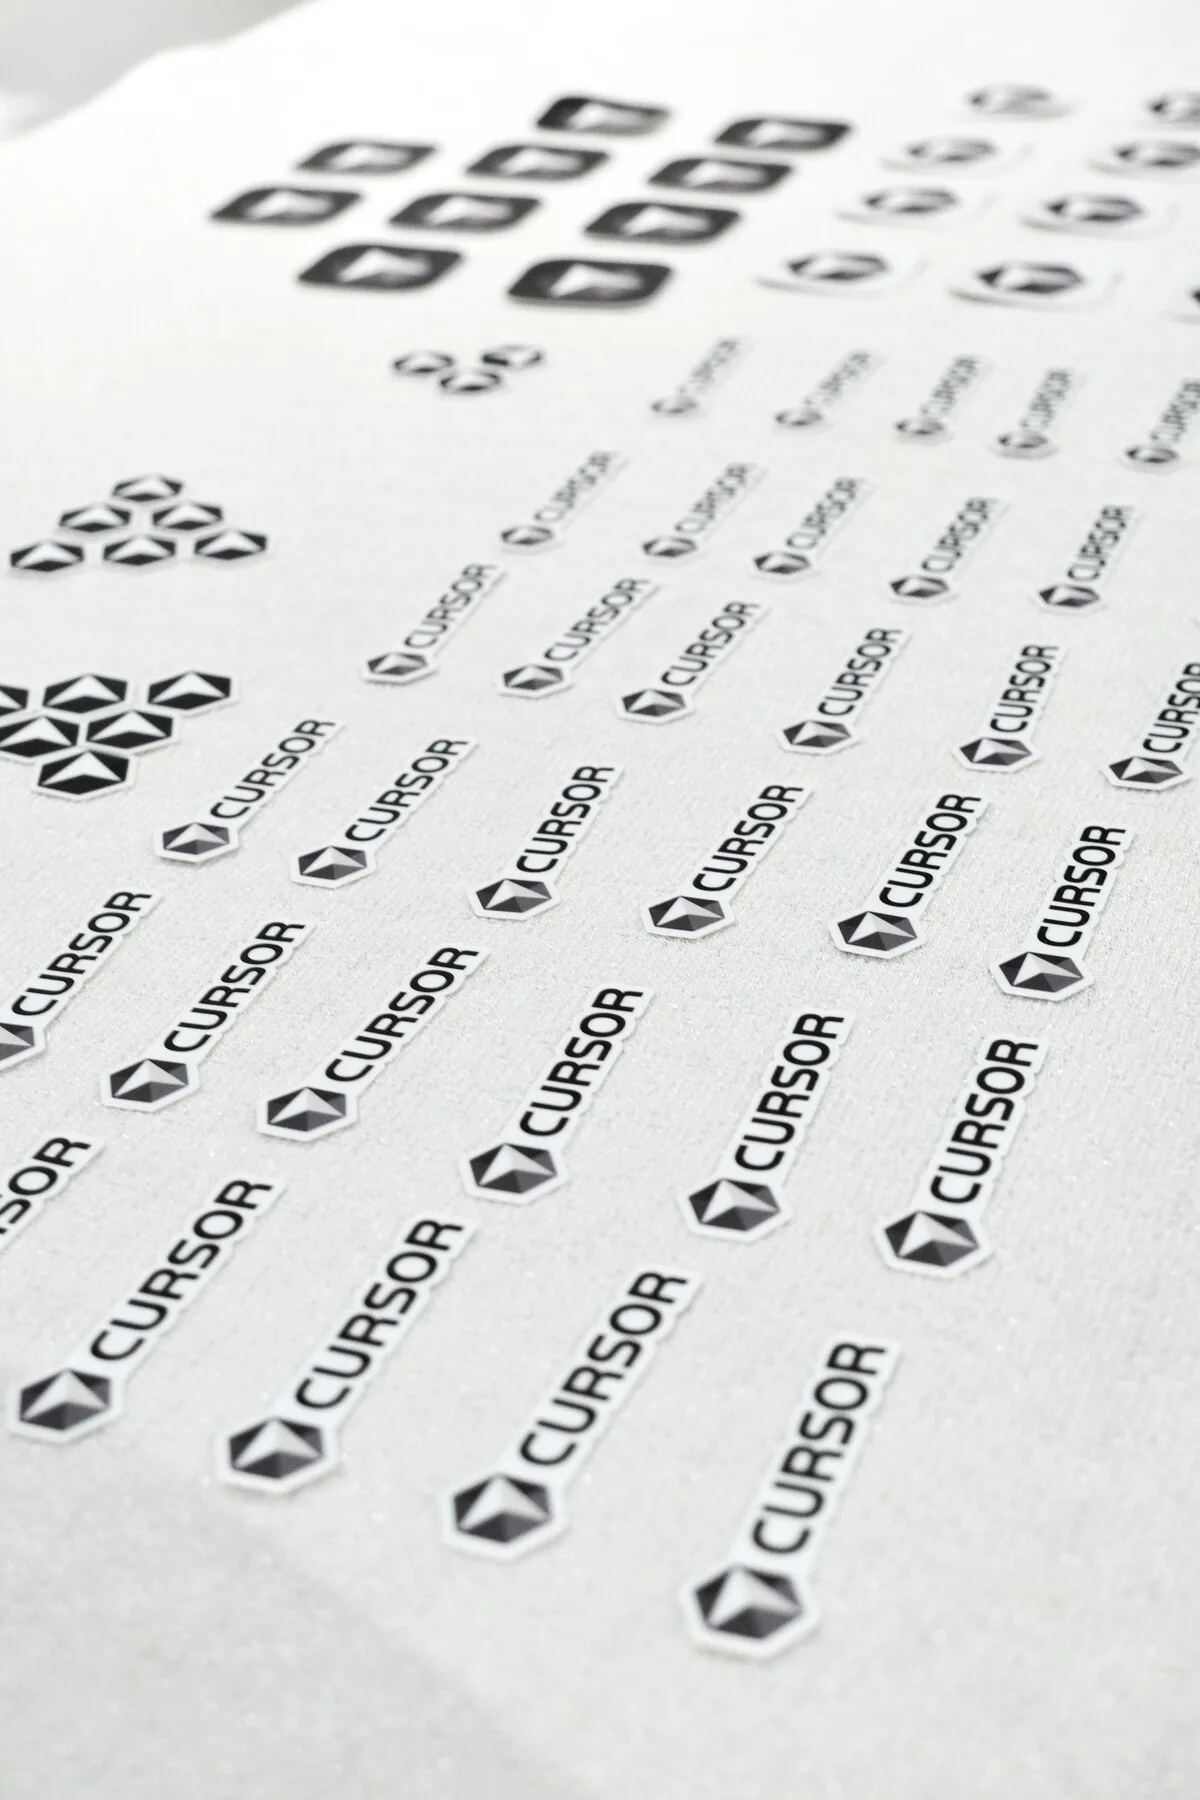 CURSOR
CURSOR
CURSOR
CURSOR
CURSOR
CURSOR
CURSOR
CURSOR
CURSOR
CURSOR
CURSOR
CURSOR
CURSOR
CURSOR
CURSOR
CURSOR
CURSOR
CURSOR
CURSOR
CURSOR
CURSOR
CURSOR
CURSOR
CURSOR
CURSOR
CURSOR
CURSOR
CURSOR
SOR
CURSOR
CURSOR
CURSOR
CURSOR